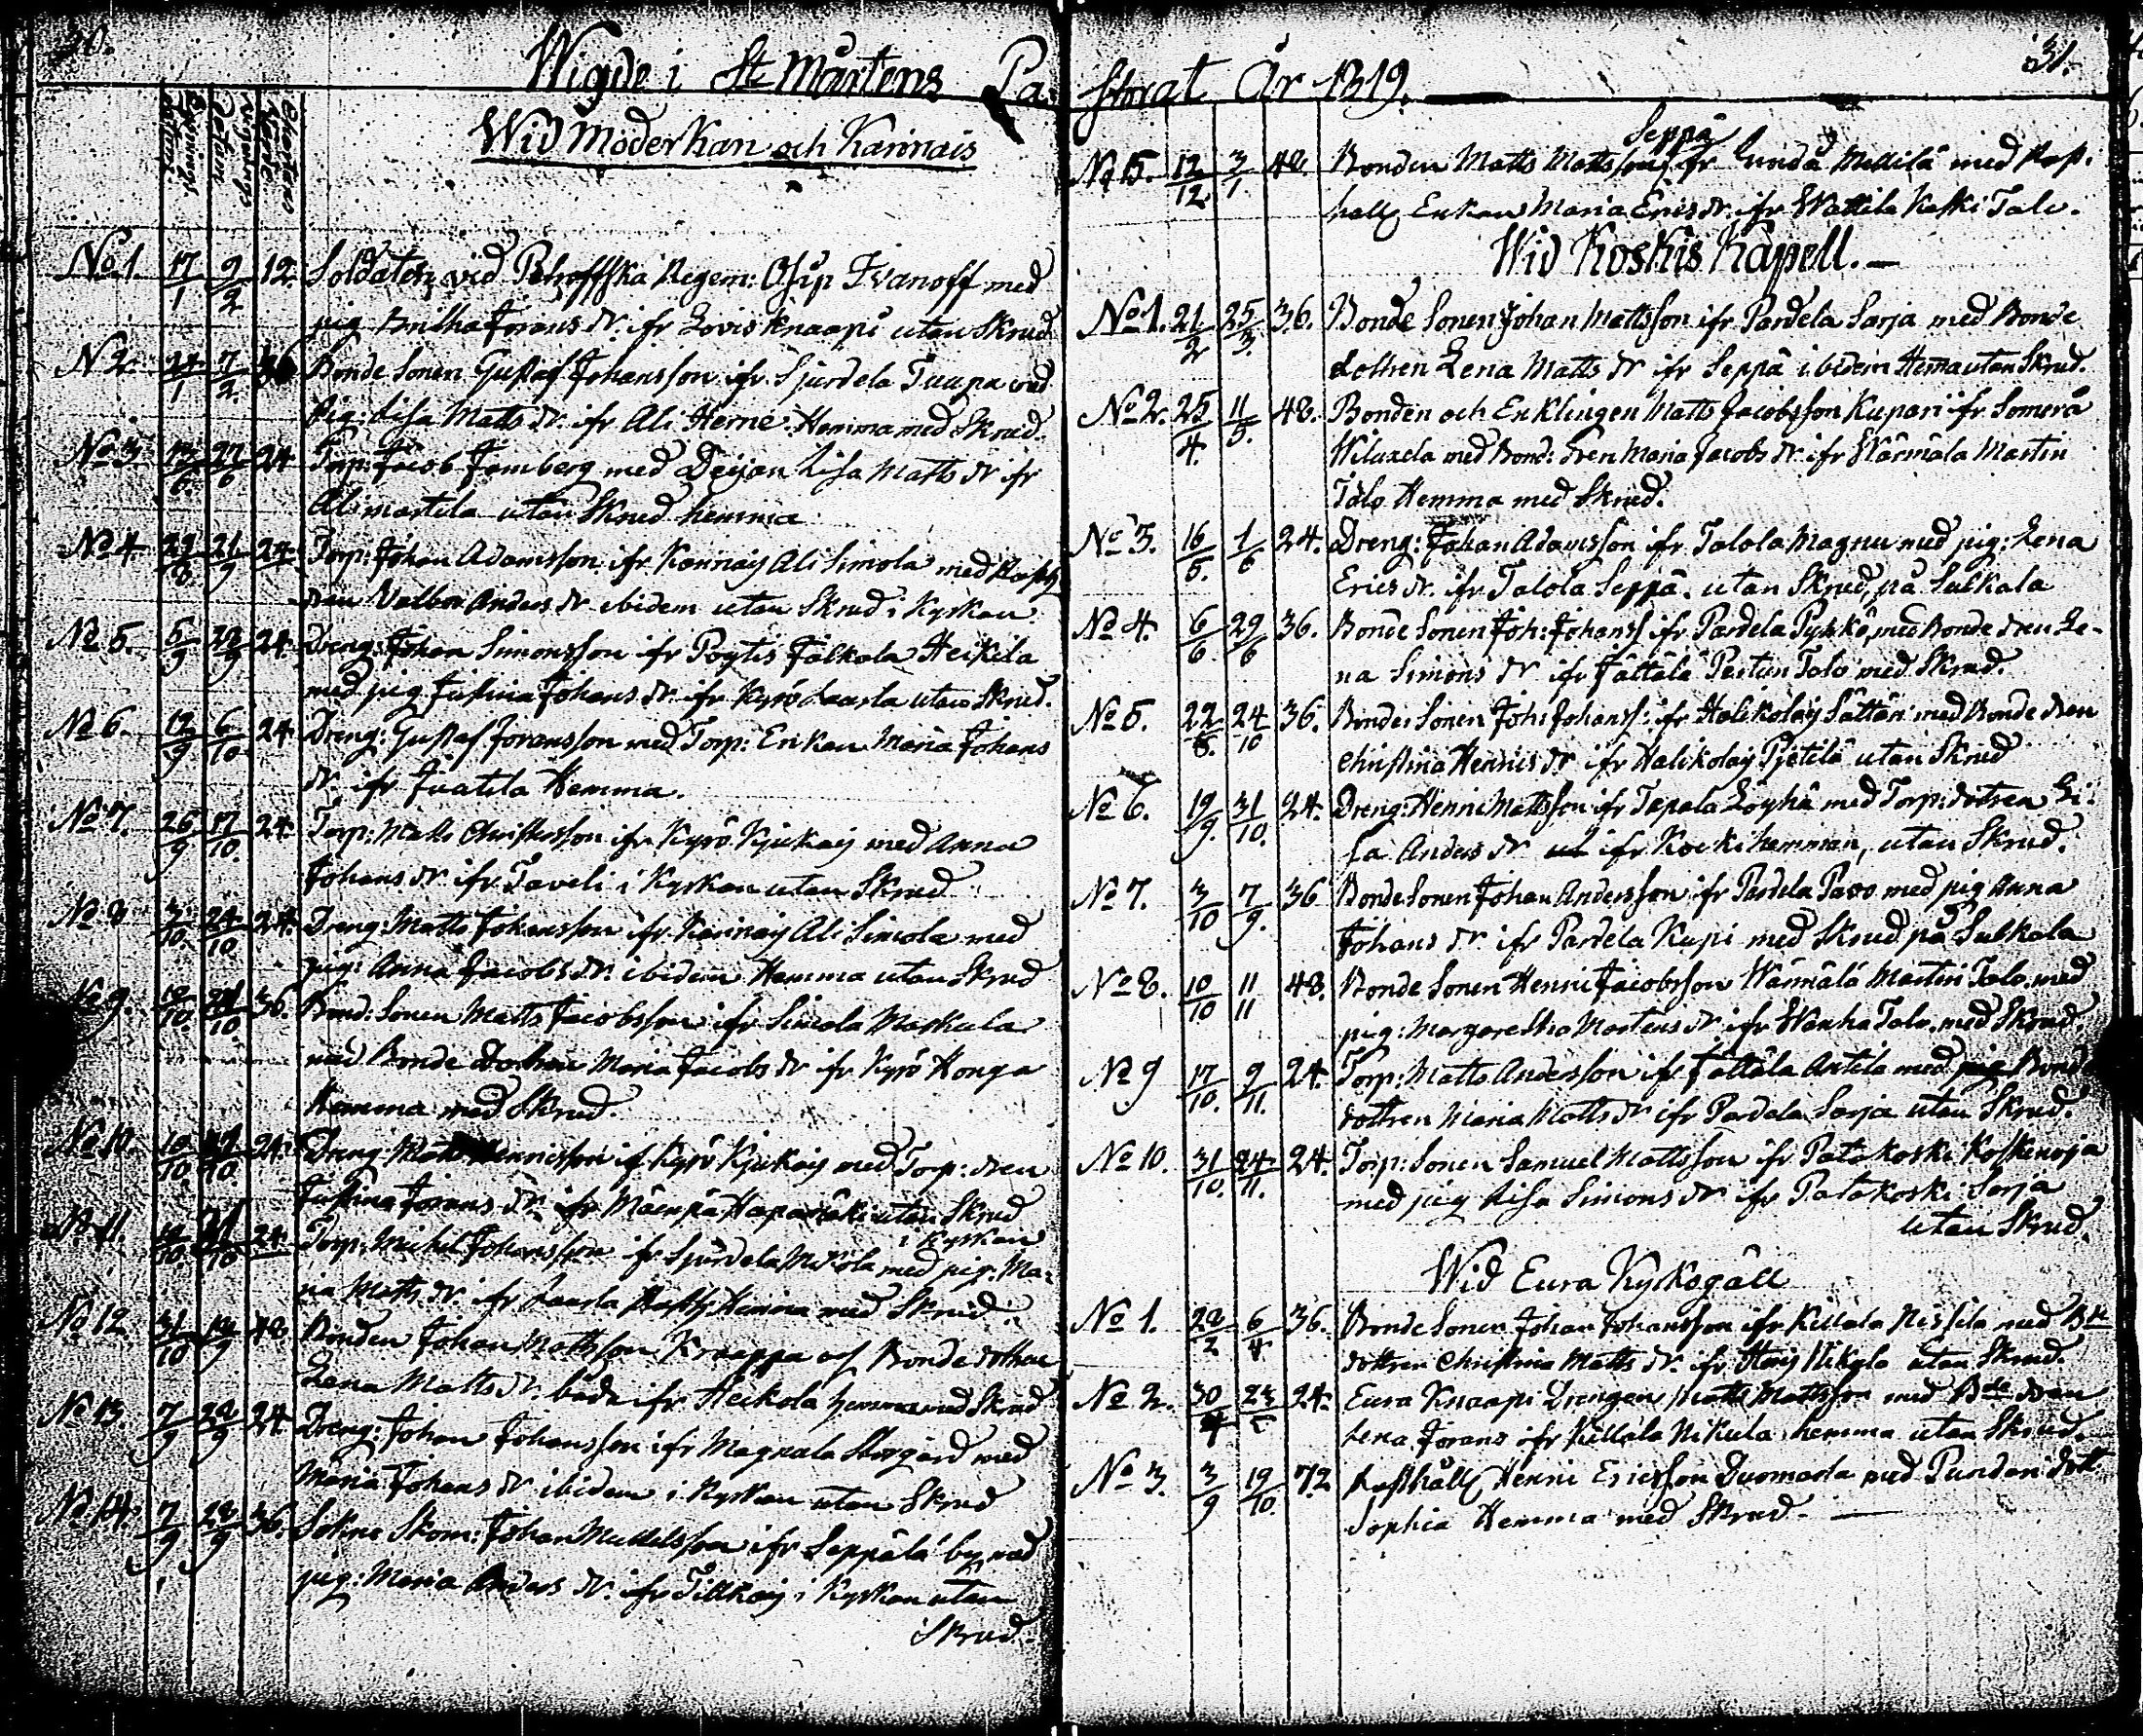 30.
Wigde i St Mårtens Pa-
Wid Moderkan och Karinais
No 1 17/1 9/2 12. Soldaten vid Petroffska Regem: Osip Ivanoff med
pig Britha Jörans Dr. ifr Lovis Knaapi utan Skrud
N 2 24/1 7/2 36 Bonde Sonen Gustaf Johansson ifr. Sjurdela Tuupa med
pig: Lisa Matts Dr. ifr Ali Herne. Hemma med Skrud.
No 3 27/6 24 Torp: Jacob med Deijan Lisa Matts Dr ifr
Alimartila utan Skrud hemma
No 4 21/9 24. Torp: Johan Adamsson ifr Karinais Ali Simola med
dren Valbor Anders Dr ibidem utan Skrud i Kyrkan.
No 5. 5/9 28/9 24. Dreng: Johan Simonsson ifr Pöytis Jalkala Heikila
med pig Justina Johans Dr. ifr Kyrö Laurla utan Skrud.
No 6. 12/9 6/10 24 Dreng: Gustaf Joransson med Torp: Enkan Maria Johans
Dr. ifr Juatila Hemma.
No 7. 26/9 17/10. 24. Torp: Matts Christersson ifr Kyrö Kjukais med Anna
Johans Dr ifr Taveli i Kyrkan utan Skrud
No 8 3/10. 24/10 24. Dreng: Matts Johansson ifr Karinais Ali Simola med
pig: Anna Jacobs Dr. ibidem Hemma utan Skrud
No 9. 10/10. 36. Bond: Sonen Matts Jacobsson ifr Simola Maskula
med Bonde Dothren Maria Jacobs Dr ifr Kyrö Konga
Hemma med Skrud.
No 10. 10/10. 24. Dreng: Matts Henricsson if Kyrö Kjukais med Torp: dren
Justina Jörans Dr. ifr Mäenpä utan Skrud
i Kyrkan
No 11. 24. Torp: Michel Johansson ifr Sjurdela Mikola med pig. Ma-
ria Matts Dr. ifr Laurla Hemma med Skrud.
No 12. 31/10 48. Bonden Johan Mattsson Knaappa och Bonde dothren
Lena Matts Dr. båda ifr Heikola hemma med Skrud
No 13 7/9 28/9 24 Dreng: Johan Johansson ifr Magnala Storgård med
Maria Johans Dr ibidem i Kyrkan utan Skrud
No 14. 7/9 28/9 36. Sokne Skom: Johan Mickelsson ifr Seppälä by med
pig: Maria Anders Dr. ifr Tillkais i Kyrkan utan
Skrud.
31.
storat År 1819.
Seppä
No 15. 12/12. 3/1 48. Bonden Matts Mattsson ifr Mellilä med Rust-
hålls Enkan Maria Erics Dr. ifr Wattila Kaski Talo.
Wid Koskis Kapell.
No 1. 21/2 25/3. 36. Bonde Sonen Johan Mattsson ifr Pardela Sarja med Bonde
dothren Lena Matts Dr ifr Seppä ibidem Hemma utan Skrud.
No 2. 25/4. 11/5. 48. Bonden och Enklingen Matts Jacobsson Kupari ifr Somero
Wiluxela med Bond: dren Maria Jacobs Dr ifr Wärmälä Martin
Talo Hemma med Skrud.
No 3. 16/5. 1/6 24. Dreng: Johan Adamsson ifr Talola Magnu med pig: Lena
Erics Dr. ifr Talola Seppä. utan Skrud, på Sulkala
No 4. 6/6. 29/6 36. Bonde Sonen Joh: Johanss ifr Pardela Pyhkö, med Bonde dren Le-
na Simons Dr ifr Tättälä Pertun Talo med Skrud.
No 5. 22/8. 24/10 36. Bonde Sonen Joh: Johanss: ifr Halikolais Sättäri med Bonde dren
Christina Henrics Dr ifr Halikolais Pjetilä utan Skrud
No 6. 19/9. 31/10. 24. Dreng: Henric Mattsson ifr Tapala Löyhä med Torp: dotren Li-
sa Anders Dr ifr Kockihemman, utan Skrud.
No 7. 3/10 7/9. 36 Bonde Sonen Johan Andersson ifr Pardela Pavo med pig Anna
Johans Dr. ifr Pardela Kupi med Skrud på Sulkala
No 8. 10/10 11/11 48. Bonde Sonen Henric Jacobsson Wärmälä Martin Talo. med
pig: Margaretha Mårtens Dr ifr Wanha Talo. med Skrud.
No 9 17/10. 9/11. 24. Torp: Matts Andersson ifr Tättälä Antila med Bonde
dottren Maria Matts Dr ifr Pardela Sarja utan Skrud.
No 10. 31/10. 24/11. 24. Torp: Sonen Samuel Mattsson ifr Patakoski Koskenoja
med pig Lisa Simons Dr ifr Patakoski Sorja
utan Skrud.
Wid Eura Kyrkogäll
No 1. 28/2 6/4. 36. Bonde Sonen Johan Johansson ifr Killala Nissila med Bde
dottren Christina Matts Dr. ifr Nikula utan Skrud.
No 2. 30/4 24. Eura Knaapi Drengen Matts Mattsson med Bde dren
Lena Jörans ifr Killala Nikula hemma utan Skrud.
No 3. 3/9 19/10. 72 Rusthålls Henric Ericsson Duomarla med dott:
Sophia Hemma med Skrud.